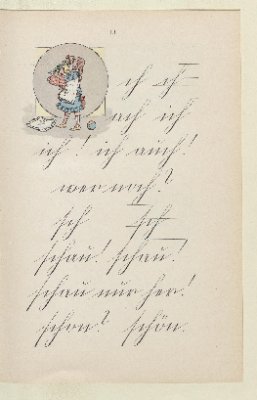 ch ch
ach ich
ich! ich auch!
wer noch?
sch sch
schau! schau!
schau nur her!
schon? schön.